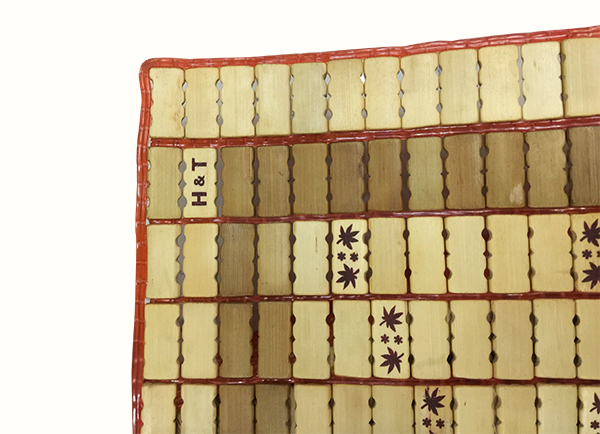 H & T